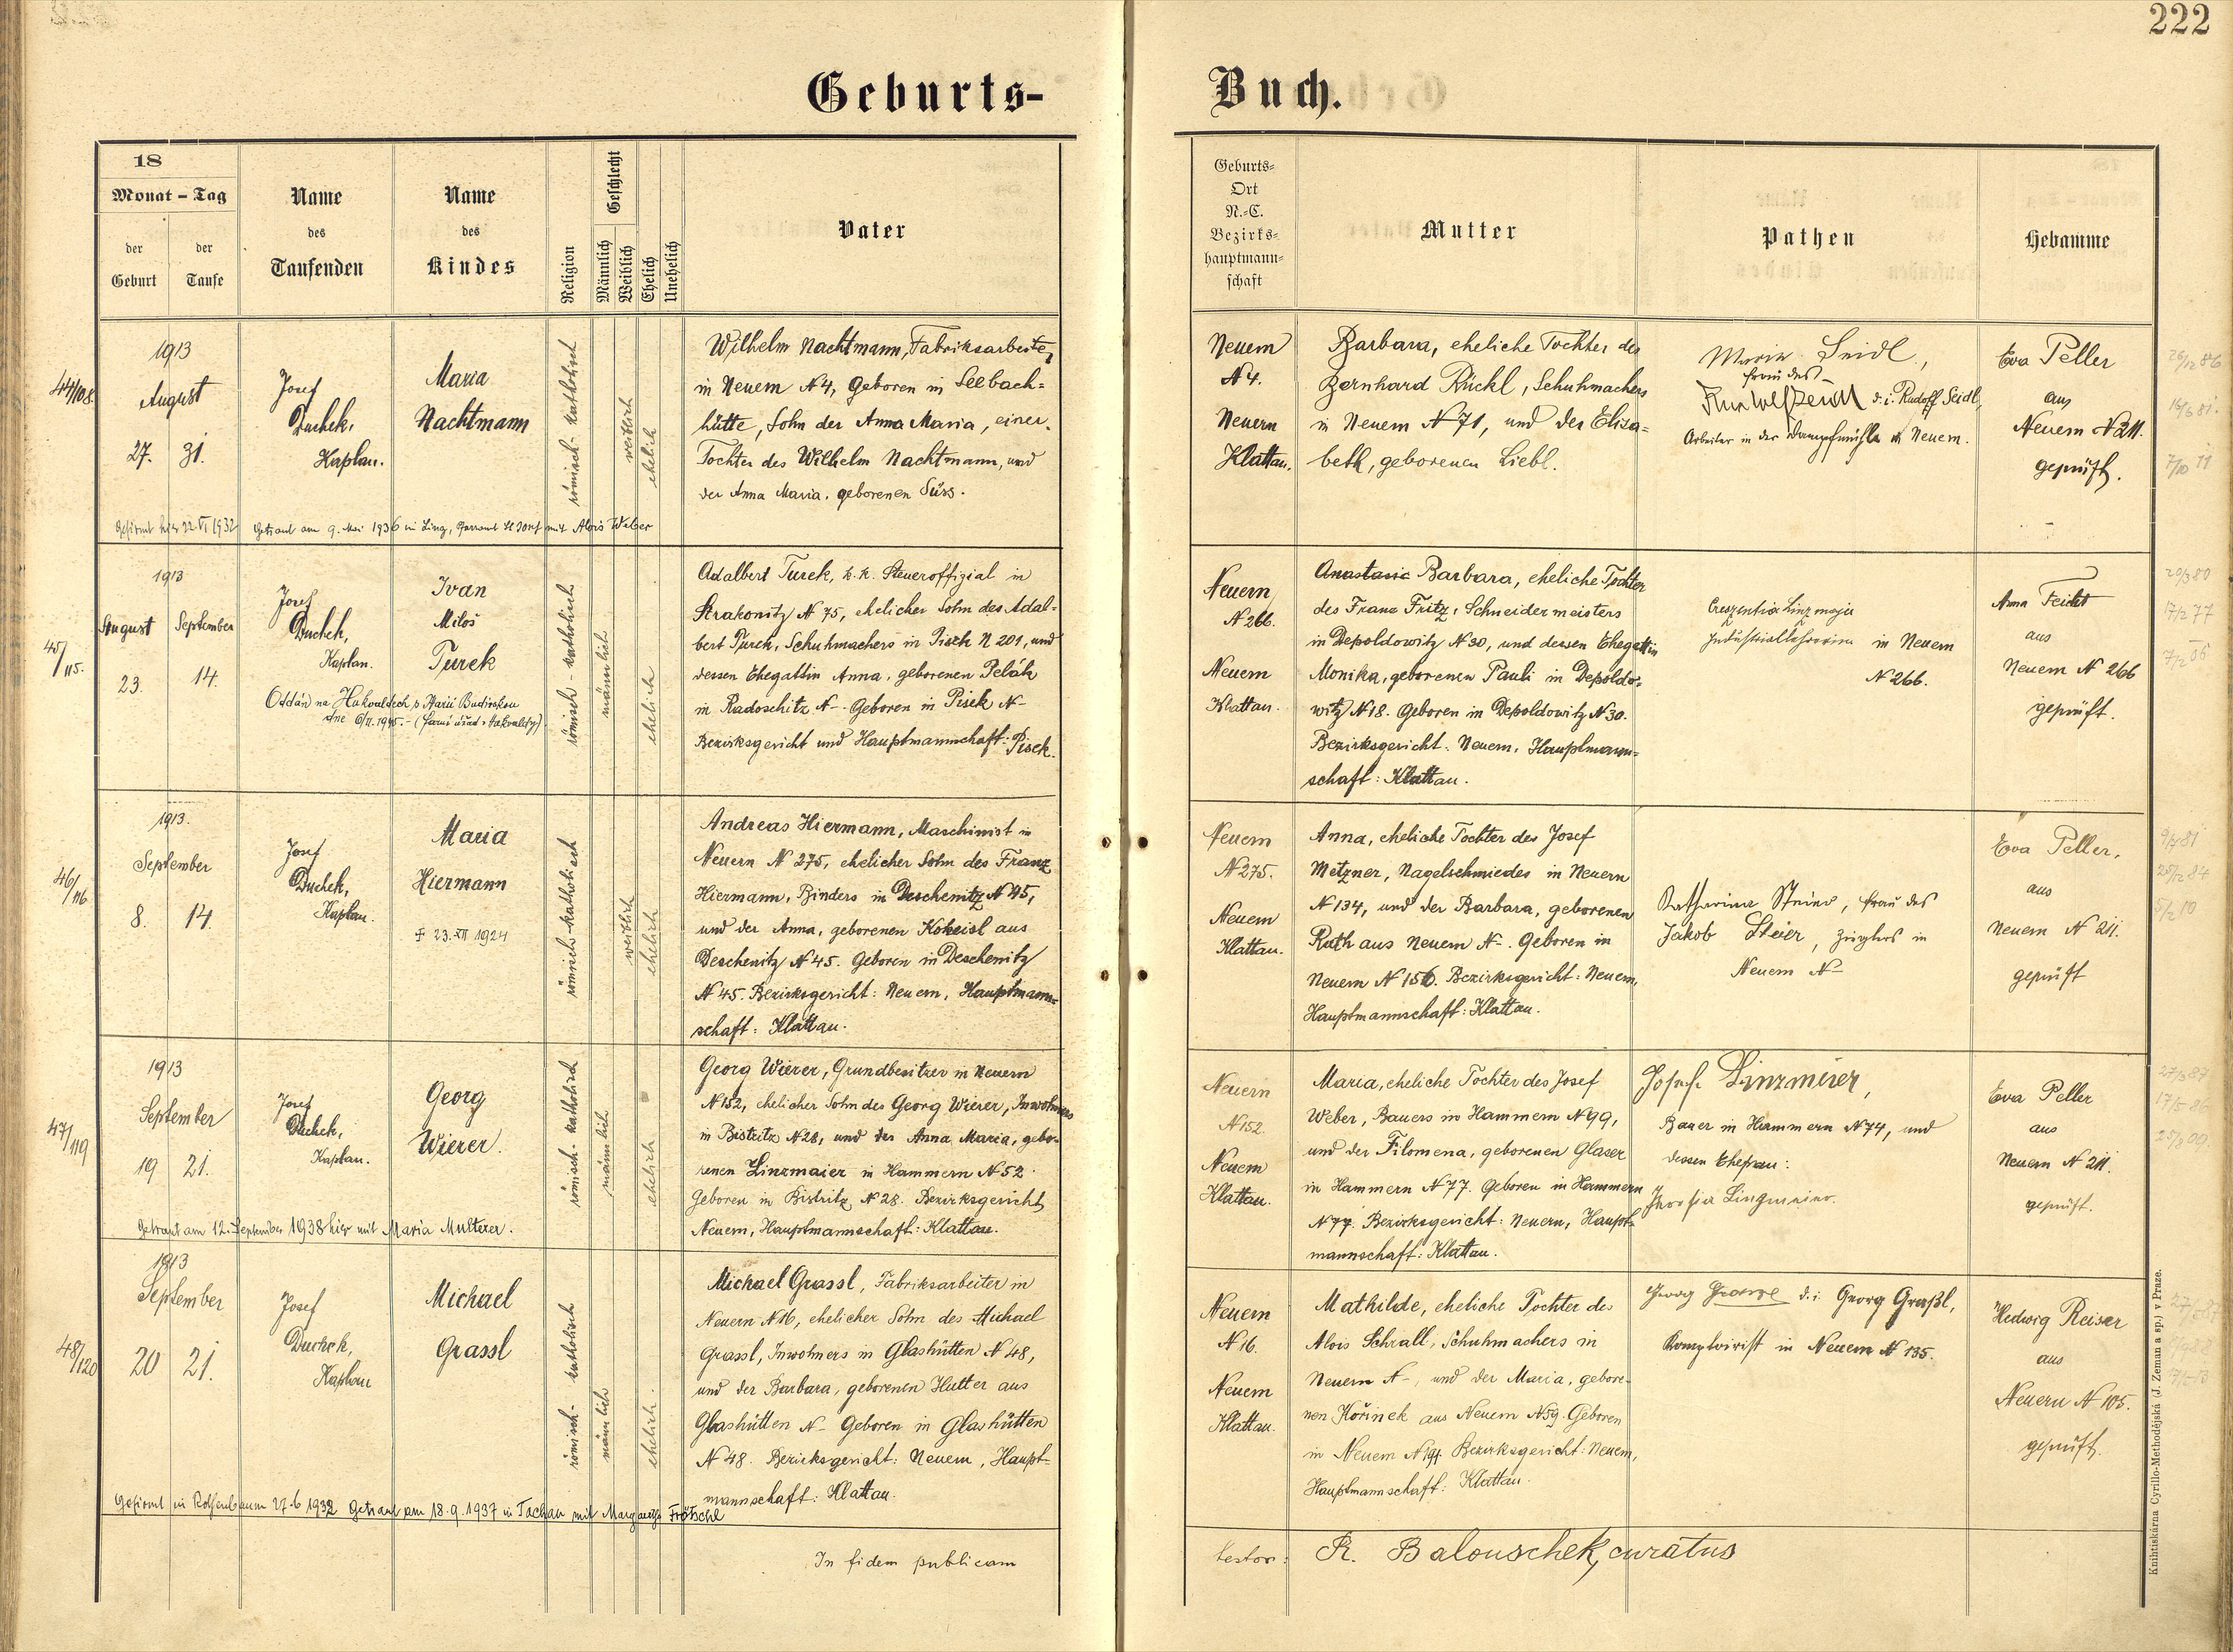 222
Geburts-
Buch.
18
Monat - Tag
der Geburt
der Taufe
Name des Taufenden
Name des Kindes
Religion
Geschlecht
Männlich
Weiblich
Ehelich
Unehelich
Vater
Geburts-
Ort
N.-C.
Bezirks-
hauptmann-
schaft
Mutter
Pathen
Hebamme
44/108.
1913
August
27. 31.
Josef
Duchek,
Kaplan.
Maria
Nachtmann
römisch-katholisch
weiblich
ehelich
Wilhelm Nachtmann, Fabriksarbeiter
in Neuern N 4, Geboren in Seebach=
hütte, Sohn der Anna Maria, einer
Tochter des Wilhelm Nachtmann, und
der Anna Maria, geborenen Süss.
Gefirmt hier 22. VI 1932 Getraut am 9. Mai 1936 in Linz, Pfarramt St Josef mit Alois Weber
Neuern
N 4.
Neuern
Klattau.
Barbara, eheliche Tochter des
Bernhard Rückl, Schuhmachers
in Neuern N 71, und der Elisa=
beth, geborenen Liebl.
Maria Seidl,
Frau des
d. i. Rudolf Seidl,
Arbeiter in der Dampfmühle in Neuern.
Eva Peller
aus
Neuern N 211.
geprüft.
26/12 86
16/6 81.
7/10 11
45/115.
1913
August September
23. 14.
Josef
Duchek,
Kaplan.
Ivan
Miloš
Turek
Oddán na Hakvaldech p Starii Budínskou
dne 6/II. 1945. - (farní úřad Hakvaldy)
römisch-katholisch
männlich
ehelich
Adalbert Turek, k. k. Steueroffizial in
Strakonitz N 75, ehelicher Sohn des Adal=
bert Turek, Schuhmachers in Pisek N 201, und
dessen Ehegattin Anna, geborenen Pelák
in Radoschitz N-. Geboren in Pisek N-
Bezirksgericht und Hauptmannschaft: Pisek.
Neuern
N 266.
Neuern
Klattau.
Anastasia Barbara, eheliche Tochter
des Franz Fritz, Schneidermeisters
in Depoldowitz N 30, und dessen Ehegattin
Monika, geborenen Pauli in Depoldo=
witz N 18. Geboren in Depoldowitz N 30.
Bezirksgericht: Neuern, Hauptmann=
schaft: Klattau.
Creszentia Linzmajer
Industriallehrerin in Neuern
N 266.
Anna Feicht
aus
Neuern N 266
geprüft.
20/3 80
17/2 77
7/2 06
46/116
1913.
September
8. 14.
Josef
Duchek,
Kaplan.
Maria
Hiermann
+ 23. XII 1924
römisch-katholisch
weiblich
ehelich
Andreas Hiermann, Maschinist in
Neuern N 275, ehelicher Sohn des Franz
Hiermann, Binders in Deschenitz N 45,
und der Anna, geborenen Kokeisl aus
Deschenitz N 45. Geboren in Deschenitz
N 45. Bezirksgericht: Neuern, Hauptmann=
schaft: Klattau.
Neuern
N 275.
Neuern
Klattau.
Anna, eheliche Tochter des Josef
Metzner, Nagelschmiedes in Neuern
N 134, und der Barbara, geborenen
Rath aus Neuern N-. Geboren in
Neuern N 156. Bezirksgericht: Neuern,
Hauptmannschaft: Klattau.
Katharina Steier, Frau des
Jakob Steier, Zieglers in
Neuern N-
Eva Peller,
aus
Neuern N 211.
geprüft
25/12 84
5/2 10
47/119
1913
September
19 21.
Josef
Duchek,
Kaplan.
Georg
Wierer.
römisch-katholisch
männlich
ehelich
Georg Wierer, Grundbesitzer in Neuern
N 152, ehelicher Sohn des Georg Wierer, Inwohners
in Bistritz N 28, und der Anna Maria, gebo=
renen Linzmaier in Hammern N 52
Geboren in Bistritz N 28. Bezirksgericht
Neuern, Hauptmannschaft: Klattau.
Getraut am 12. September 1938 hier mit Maria Multerer.
Neuern
N 152.
Neuern
Klattau.
Maria, eheliche Tochter des Josef
Weber, Bauers in Hammern N 99,
und der Filomena, geborenen Glaser
in Hammern N 77. Geboren in Hammern
N 77. Bezirksgericht: Neuern, Haupt=
mannschaft: Klattau.
Josef Linzmeier,
Bauer in Hammern N 74, und
dessen Ehefrau:
Linzmeier
Eva Peller
aus
Neuern N 211.
geprüft.
27/3 87
17/5 86
48/120
1913
September
20 21.
Josef
Duchek,
Kaplan
Michael
Grassl
römisch-katholisch
männlich
ehelich.
Michael Grassl, Fabriksarbeiter in
Neuern N 16, ehelicher Sohn des Michael
Grassl, Inwohners in Glashütten N 48,
und der Barbara, geborenen Hutter aus
Glashütten N- Geboren in Glashütten
N 48. Bezirksgericht: Neuern, Haupt=
mannschaft: Klattau.
Gefirmt in Rothenbaum 27.6 1932 Getraut am 18.9.1937 in Tachau mit Margarethe Frötschl
Neuern
N 16.
Neuern
Klattau.
Mathilde, eheliche Tochter des
Alois Schrall, Schuhmachers in
Neuern N-, und der Maria, gebore=
nen Kořinek aus Neuern N 59. Geboren
in Neuern N 194 Bezirksgericht: Neuern,
Hauptmannschaft: Klattau.
Georg d. i. Georg Graßl,
Komptoirist in Neuern N 135.
Hedwig Reiser
aus
Neuern N 105.
geprüft.
In fidem publicam
testor: R. Balouschek, curatus
Knihtiskárna Cyrillo-Methodějská (J. Zeman a sp.) v Praze.